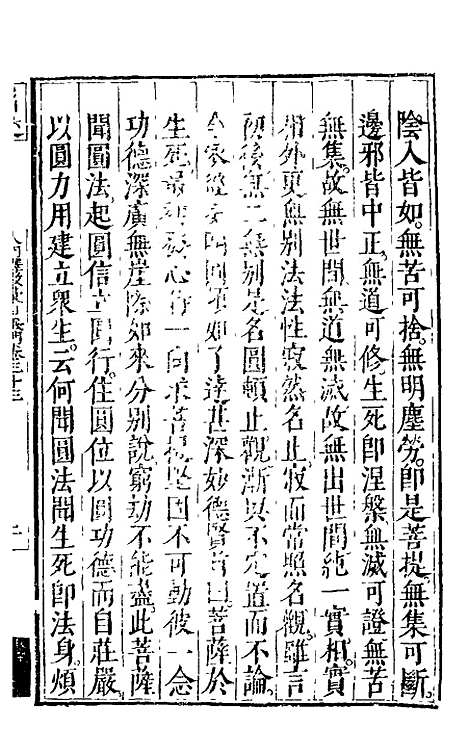 陰入皆如。無苦可捨。無明塵勞。即是菩提。無集可斷。
邊邪皆中正。無道可修。生死即涅槃。無滅可證。無苦
無集。故無世間。無道無滅。故無出世間。純一實相。實
相外更無別法。法性寂然名止。寂而常照名觀。雖言
初後無二無別。是名圓頓止觀。漸與不定置而不論。
今依經 如了達甚深妙德賢首曰。菩薩於
生死最初發心時一向求菩提堅固不可動彼一念
功德深廣無崖際如來分別說窮劫不能盡。此菩薩
聞圓法。起圓信。立圓行。住圓位。以圓功德而自莊嚴。
以圓力用建立眾生。云何聞圓法聞生死即法身。煩